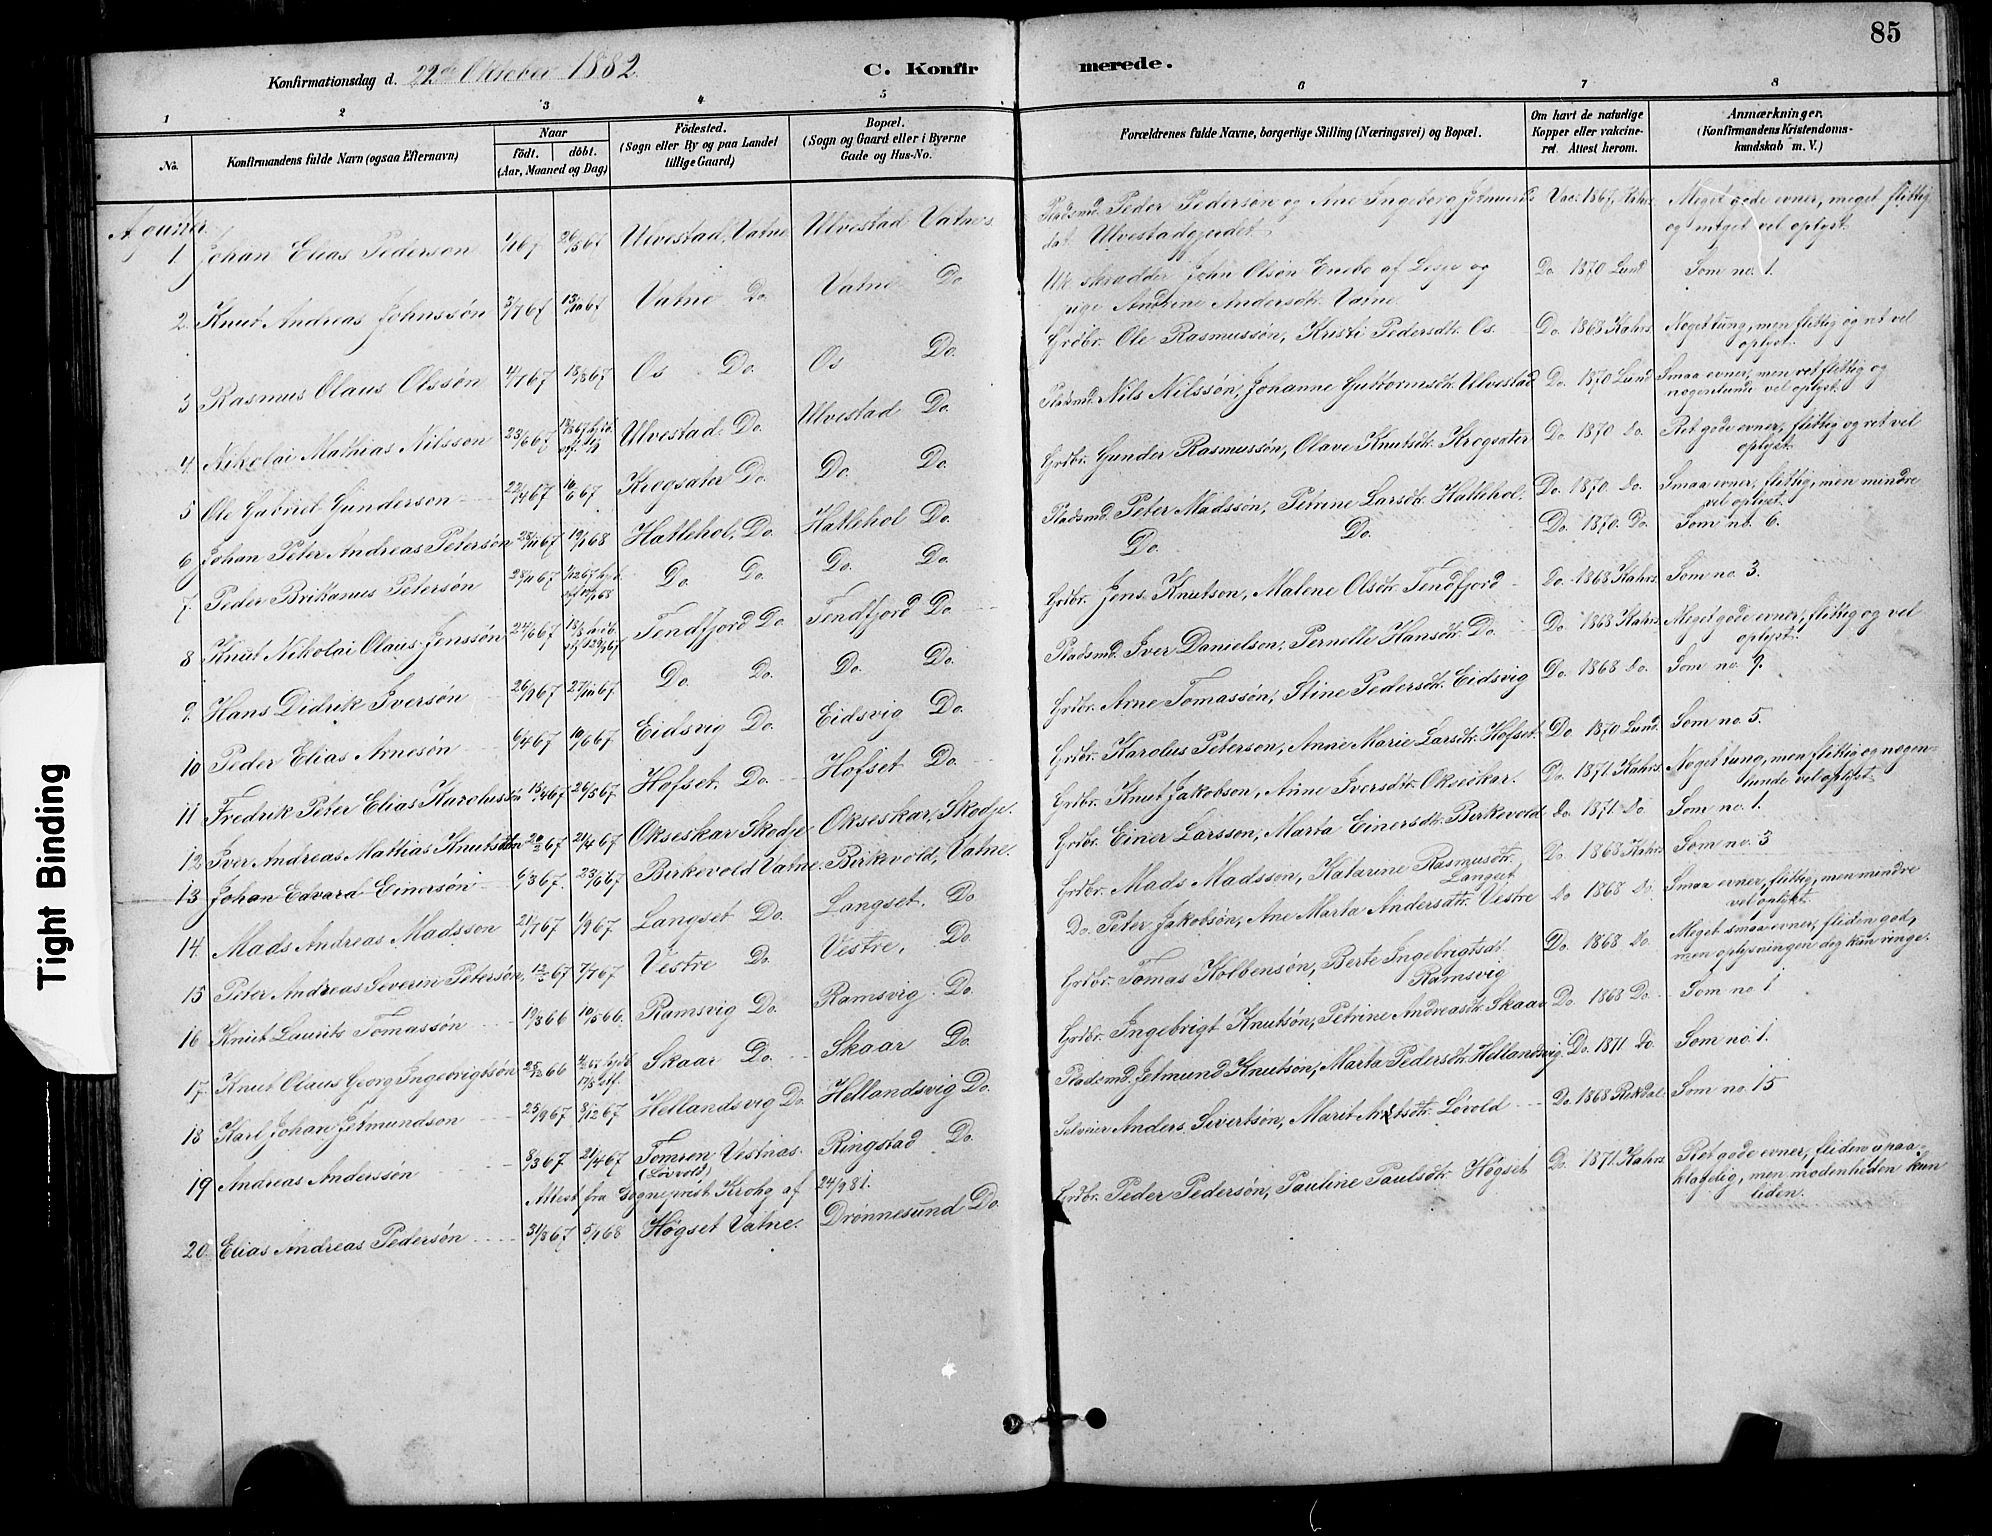 85
Konfirmationsdag d. 22de Oktober 1882.
C. Konfirmerede.
1 2 3 4 5 6 7 8
No.
Konfirmandens fulde Navn (ogsaa Efternavn)
Naar
födt. döbt.
(Aar, Maaned og Dag)
Födested.
(Sogn eller By og paa Landet
tillige Gaard)
Bopæl.
(Sogn og Gaard eller i Byerne
Gade og Hus-No.
Forældrenes fulde Navne, borgerlige Stilling (Næringsvei) og Bopæl.
Om havt de naturlige
Kopper eller vakcine-
ret. Attest herom.
Anmærkninger.
(Konfirmandens Kristendoms-
kundskab m. V.)
1 Johan Elias Pederson 26/5 67 Ulvestad, Vatne Ulvestad Vatne Pladsmd. Peder Pedersøn og Ane Ingeborg Jetmunds- Vac. 1867, Meget gode evner, meget flittig
dat. Ulvestadgjerdet. og meget vel oplyst.
2. Knut Andreas Johnssøn 3/7 67 13/10 67 Vatne Do. Vatne Do. Skrædder John Olsøn Enebo af Lesje og Do. 1870 Lund Som no. 1.
pige Andrine Andersdtr. Vatne
3 Rasmus Olaus Olssøn 4/7 67 18/8 67 Os Do. Os Do. Grdbr. Ole Rasmussøn, Kristi Pedersdtr. Os. Do. 1868 Kahrs. Noget tung, men flittig og ret vel
oplyst.
4. Nikolai Mathias Nilsson 23/6 67 Ulvestad. Do. Ulvestad Do. Pladsmd. Nils Nilssøn, Johanne Guttormsdtr. Ulvestad Do. 1870 Lund Smaa evner, men ret flittig og
nogenlunde vel oplyst.
5 Ole Gabriel Gunderson 22/4 67 16/6 67 Krogsæter Do. Do. Do. Grdbr. Gunder Rasmussøn, Olave Knutsdtr. Krogsæter Do. 1870 do. Ret gode evner, flittig og ret vel
oplyst.
6 Johan Peter Andreas Petersøn 28/11 67 19/1 68 Hatlehol, Do. Hatlehol Do. Pladsmd. Peter Madssøn, Petrine Larsdtr. Hatlehol. Do. 1870. do. Smaa evner, flittig, men mindre
vel oplyst.
7. Peder Brikanus Petersøn 28/11 67 Do. Do. Do. Do. Do. Do. Do. 1870. Do. Som no. 6.
8 Knut Nikolai Olaus Jenssøn 24/6 67 Tendfjord Do. Tendfjord Do. Grdbr. Jens Knutson, Malene Olsdtr. Tendfjord Do. 1868 Kahrs. Som no. 3.
9. Hans Didrik Iversøn 26/9 67 27/10 67 Do. Do. Do. Do. Pladsmd. Iver Danielson, Pernelle Hansdtr. Do. Do. 1868 Kahrs. Meget gode evner, flittig og vel
oplyst.
10 Peder Elias Arnesøn 6/4 67 10/6 67 Eidsvig Do. Eidsvig Do. Grdbr. Arne Tomassøn, Stine Pedersdtr. Eidsvig Do. 1868 do. Som no. 9.
11 Fredrik Peter Elias Karolussøn 15/4 67 26/5 67 Hofset. Do. Hofset Do. Grdbr. Karolus Peterson, Anne Marie Larsdtr. Hofset. Do. 1870 Lund. Som no. 5.
12 Iver Andreas Mattias Knutssøn 67 21/4 67 Okseskar Skodje Okseskar, Skodje. Grdbr. Knut Jakobson, Anne Iversdtr. Okseskar. Do. 1871 Kahrs. Noget tung, men flittig og nogen-
lunde vel oplyst.
13 Johan Edvard Einersøn 6/3 67. 23/6 67 Birkevold Vatne. Birkevold, Vatne. Grdbr. Einer Larssen, Marta Einersdtr. Birkevold do. 1871. do Som no. 1.
14. Mads Andreas Madsson 21/7 67 1/9 67 Langset Do. Langset. Do Grdbr. Mads Madsson, Katarine Rasmusdtr. Do. 1868 Kahrs Som no. 3
Langset
15 Peter Andreas Severin Petersøn, 67 7/7 67 Vestre Do. Vestre, Do. Do. Peter Jakobsøn, Ane Marta Andersdtr. Vestre do 1868 do. Smaa evner, flittig, men mindre
vel oplyst.
16 Knut Laurits Tomassøn 19/3 66 10/5 66. Ramsvig Do. Ramsvig. Do. Grdbr. Tomas Kolbensøn, Berte Ingebrigtsdt. Do. 1868 do. Meget smaa evner, fliden god,
Ramsvig men oplysningen dog kun ringe.
17. Knut Olaus Georg Ingebrigtsøn 66 Skaar Do. Skaar Do. Grdbr. Ingebrigt Knutsøn, Petrine Andreasdtr. Skaar Do. 1868 Do. Som no. 1
18 Karl Johan Jetmundson 25/9 67 8/12 67 Hellandsvig Do. Hellandsvig Do. Pladsmd. Jetmund Knutson, Marta Pedersdtr. Hellandsvig. Do. 1871 do. Som no. 1.
19 Andreas Anderssøn 8/3 67 21/4 67 Tomren Vestnæs. Ringstad Do. Selveier Anders Sivertsøn, Marit Løvold Do. 1868 Som no. 15
(Løvold)
Attest fra Sogneprest Krohg af 24/9 81.
20. Elias Andreas Pedersøn 31/8 67 5/1 68 Høgset Vatne. Drønnesund Do. Grdbr. Peder Pedersøn, Pauline Paulsdtr. Høgset Do. 1871. Kahrs. Ret gode evner, fliden upaa-
klagelig, men modenheden kun
liden.
Tight Binding